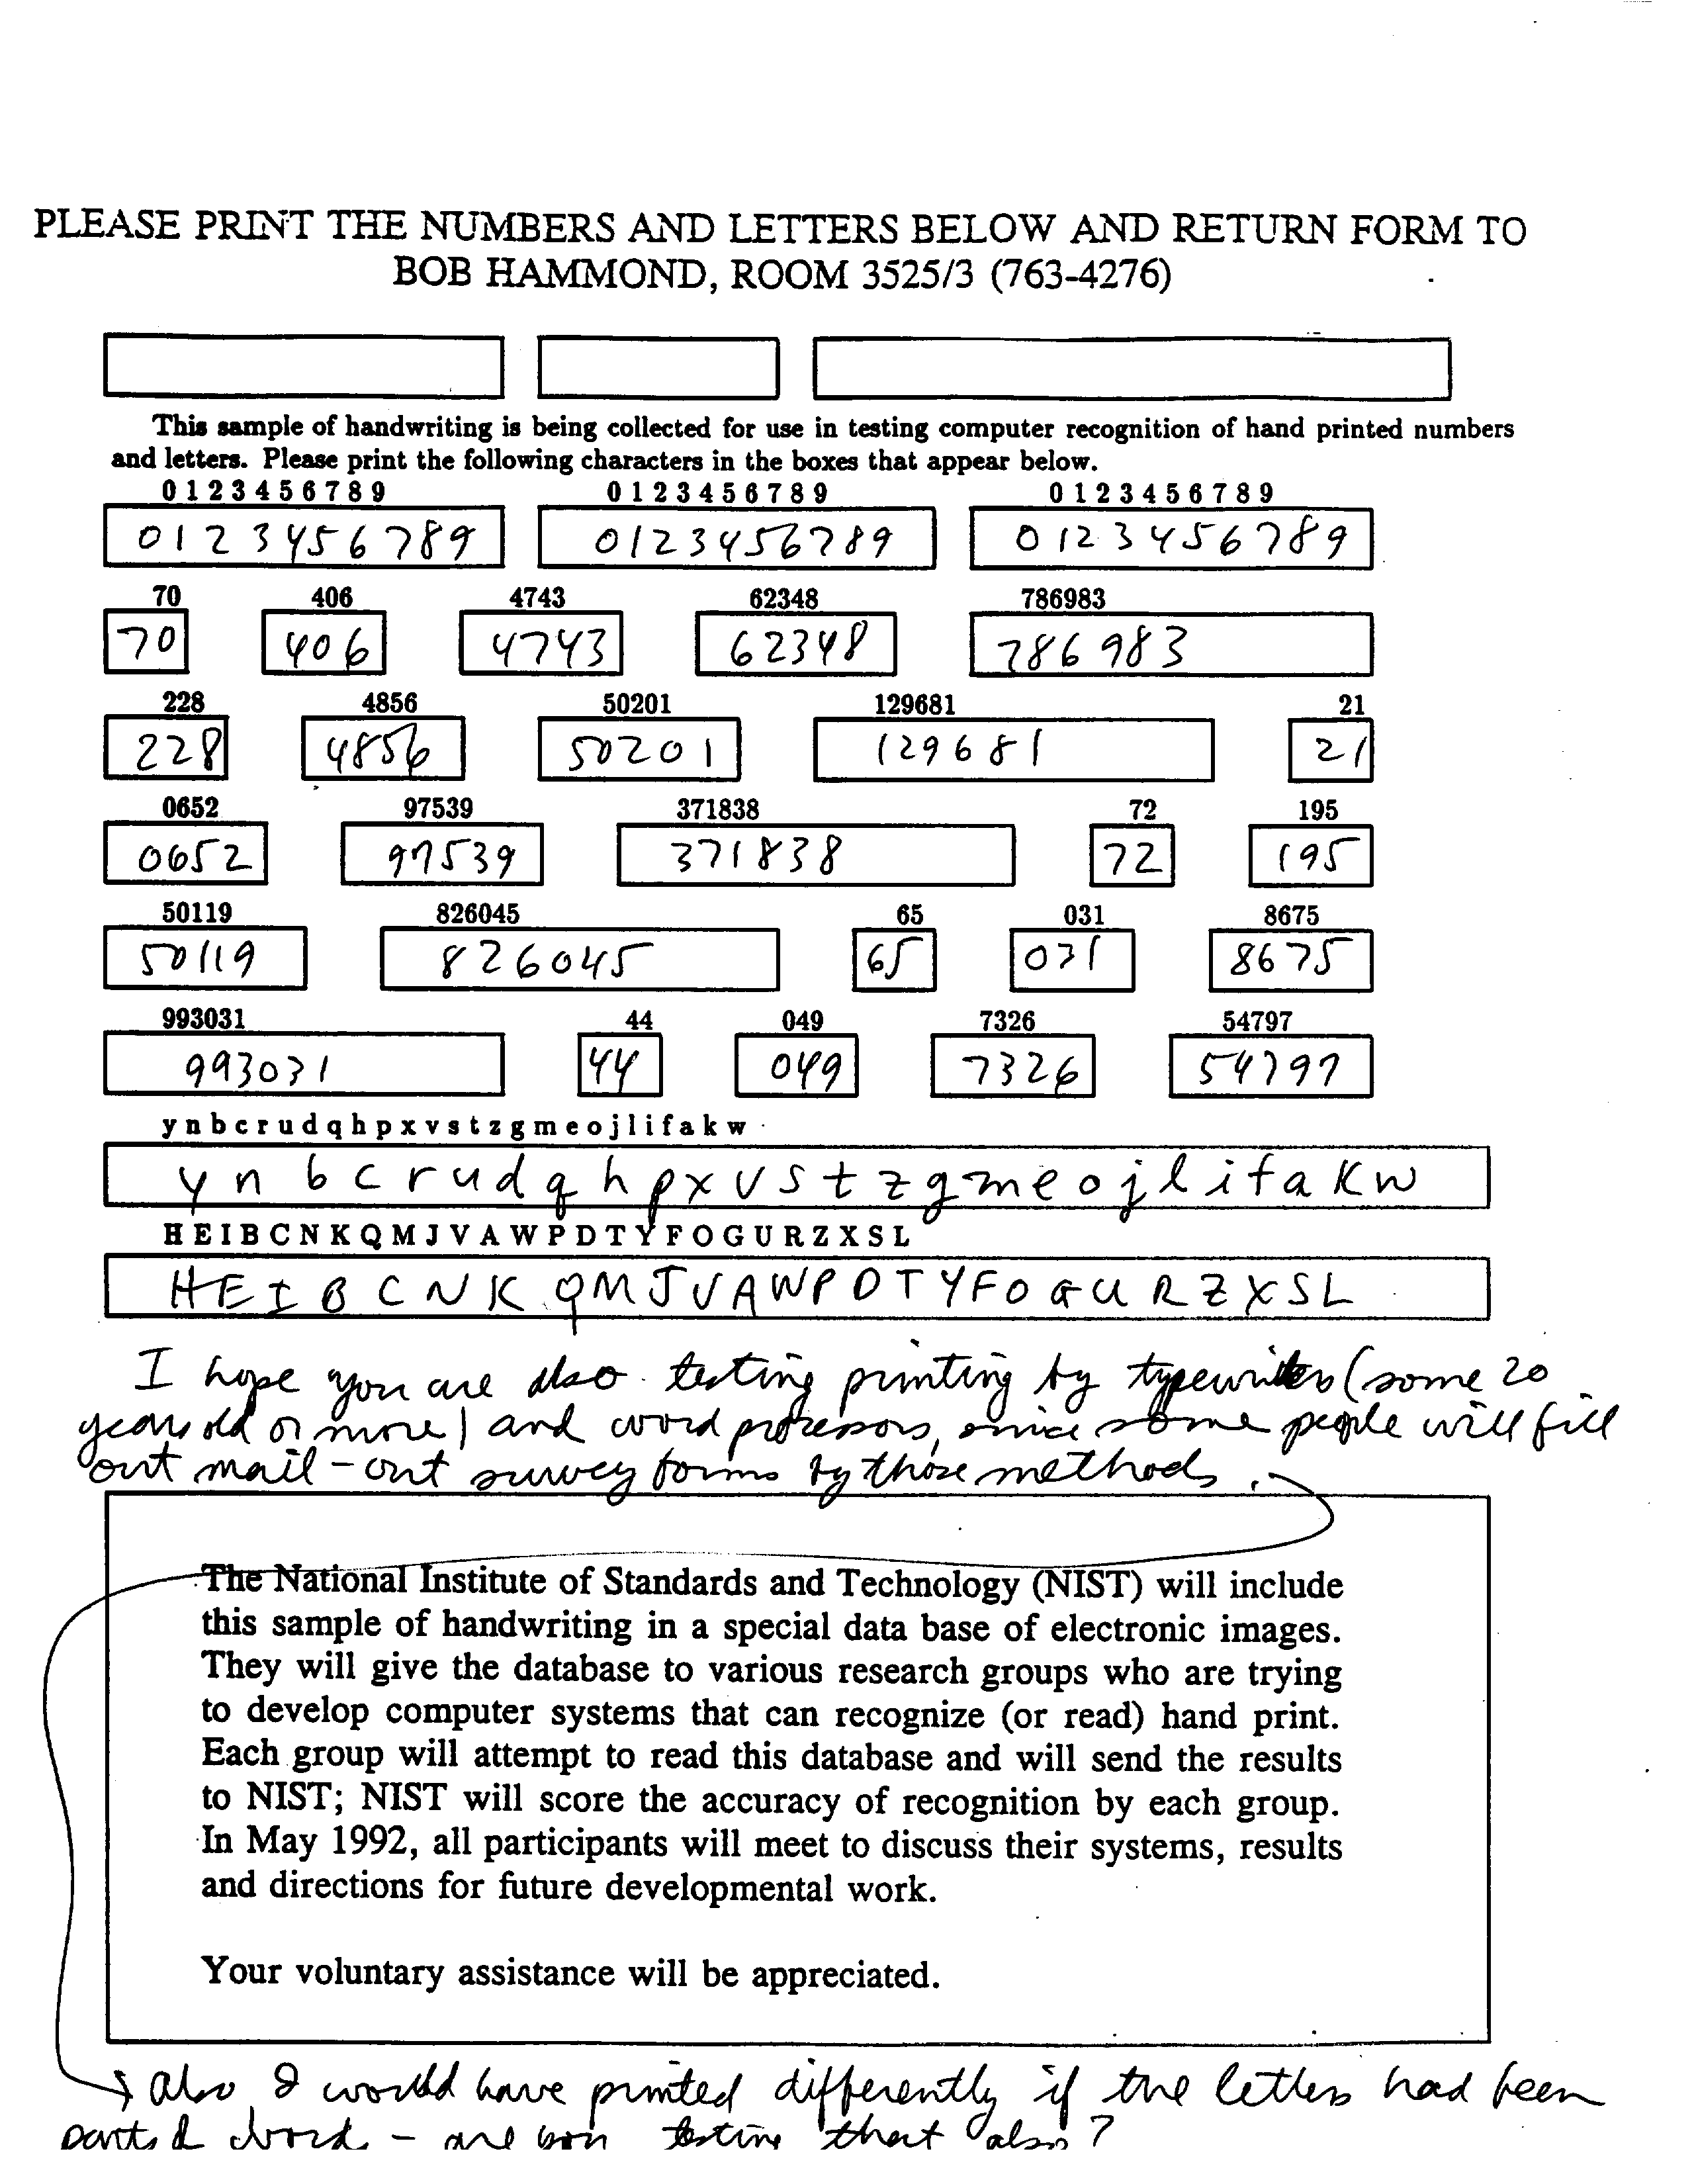 PLEASE PRINT THE NUMBERS AND LETTERS BELOW AND RETURN FORM TO
BOB HAMMOND, ROOM 3525/3 (763-4276)
This sample of handwriting is being collected for use in testing computer recognition of hand printed numbers
and letters. Please print the following characters in the boxes that appear below.
0 1 2 3 4 5 6 7 8 9 0 1 2 3 4 5 6 7 8 9 0 1 2 3 4 5 6 7 8 9
0123456789 0123456789 0123456789
70 406 4743 62348 786983
70 406 4743 62348 786983
228 4856 50201 129681 21
228 4856 50201 129681 21
0652 97539 371838 72 195
0652 97539 371838 72 195
50119 826045 65 031 8675
50119 826045 65 031 8675
993031 44 049 7326 54797
993031 44 049 7326 54797
y n b c r u d q h p x v s t z g m e o j l i f a k w
y n b c r u d q h p x v s t z g m e o j l i f a k w
H E I B C N K Q M J V A W P D T Y F O G U R Z X S L
H E I B C N K Q M J V A W P D T Y F O G U R Z X S L
I hope you are also testing printing by typewriters (some 20
years old or more) and word processors, since some people will fill
out mail-out survey forms by those methods.
The National Institute of Standards and Technology (NIST) will include
this sample of handwriting in a special data base of electronic images.
They will give the database to various research groups who are trying
to develop computer systems that can recognize (or read) hand print.
Each group will attempt to read this database and will send the results
to NIST; NIST will score the accuracy of recognition by each group.
In May 1992, all participants will meet to discuss their systems, results
and directions for future developmental work.
Your voluntary assistance will be appreciated.
also I would have printed differently if the letters had been
parts of words - are you testing that also?